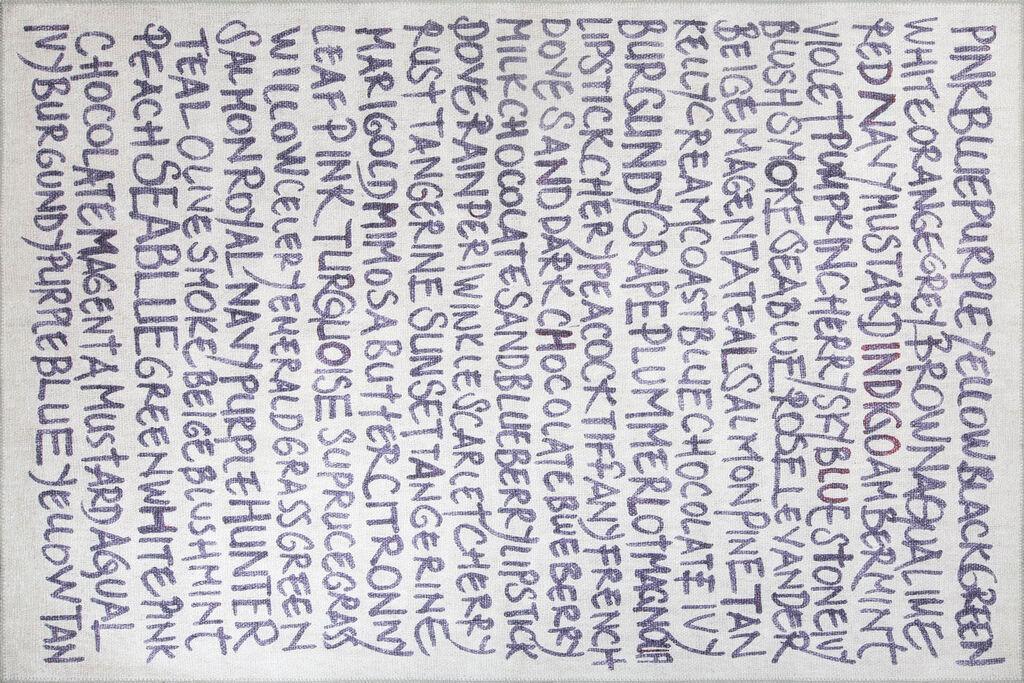 PINKBLUEPURPLEYELLOWBLACKGREEN
WHITEORANGEGREYBROWNAQUALIME
REDNAVYMUSTARDINDIGOAMBERMINT
VIOLETPUMPKINCHERRYSKYBLUESTONEIVY
BLUSHSMOKESEABLUEROSELEVANDER
BEIGEMAGENTATEALSALMONPINETAN
KELLYCREAMCOASTBLUECHOCOLATE IVY
BURGUNDYGRAPEPLUMMERLOTMAGNOLIA
LIPSTICKCHERYPEACOCKTIFFANYFRENCH
DOVESANDDARKCHOCOLATEBLUEBERRY
MILKCHOCOLATESANDBLUEBERRYLIPSTICK
DOVERAINPERIWINKLESCARLETCHERRY
RUST TANGERINE SUNSETTANGERINE
MARIGOLDMIMOSABUTTERCITRONIVY
LEAF PINK TURQUOISE SUPRUCEGRASS
WILLOWCELERYEMERALDGRASSGREEN
SALMONROYALNAVYPURPLEHUNTER
TEAL OLIVESMOKEBEIGEBLUSHMINT
PEACHSEABLUEGREENWHITEPINK
CHOCOLATEMAGENTAMUSTARDAQUAL
IVYBURGUNDYPURPLEBLUEYELLOWTAN